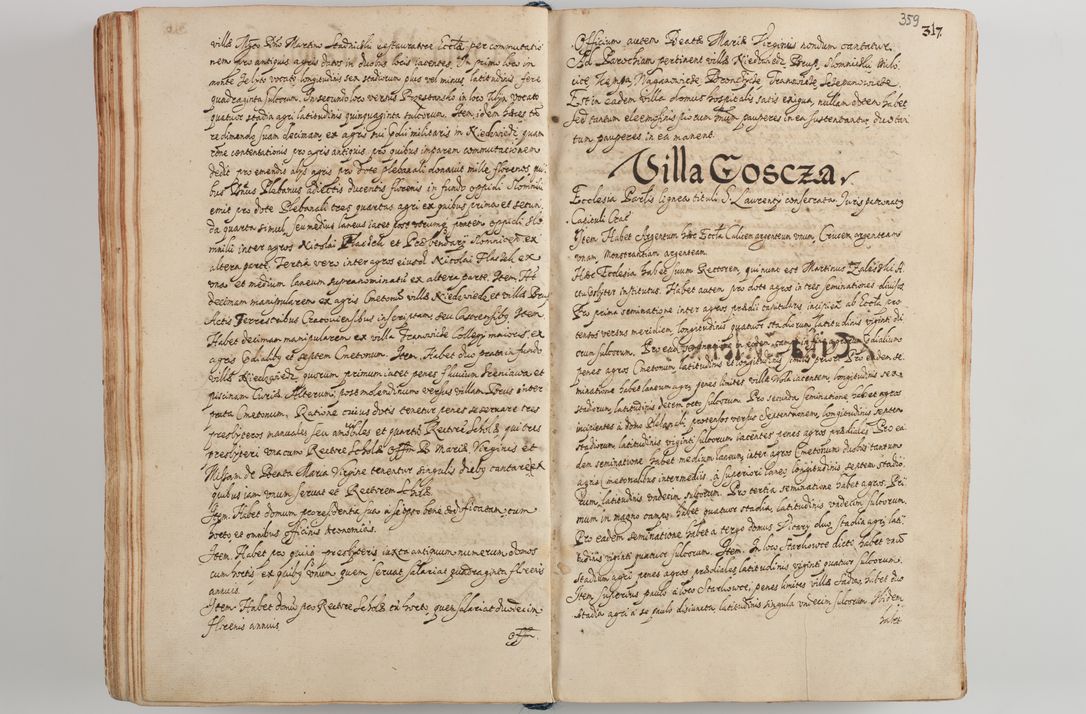 villæ Mgco Dno Martino Stadnicki restauratore Eccłæ per commutatio
nem pro antiquis agris datos in duobus locis iacentes. In primo loco in
monte Jelyas vocato longitudinis sex stadiorum plus vel minus latitudinis fere
quadraginta sulcorum. In secundo loco versus Przestansko in loco vocato
quatuor stadia agri latitudinis quinquaginta sulcorum. Item, idem hæres tē
redimendo suam decimam ex agris sui Prædii militaris in Niedzwiedz, quam
rōne contentationis pro agris antiquis, pro quibus imparem commutacionem
dedit pro emendis alys agris pro dote plebanali donavit mille florenos, qui
bus Plebanus adiectis ducentis florenis in fundo oppidi Slomniki
emit pro dote Plebanali tres quartas agri ex quibus prima et secun
da quarta simul, seu medius laneus iacet post utrumq pontem oppidi Slo
mniki inter agros Nicolai Flasek et Præbendarij Slomnicen ex
altera parte. Tertia vero inter agros eiusd Nicolai Flasek ex
una et medium laneum supranominatū ex altera parte. Item Ht
decimam manipularem ex agris Cmetonū villæ Niedzwiedz et villæ Prus
Actis Terrestribus Cracoviensibus inscriptam seu Item
Habet decimam manipularem ex villa Tranowice Collegij maioris, ex
agris Prædialibq et septem Cmetonum. Item. Habet duo prata in fundo
villæ Niedzwiedz quorum primum iacet penes fluvium Sreniawa et
piscinam Curiæ Alterum, post molendinum versus villam Prus inter
prata Cmetonum, Ratione cuius dotis tenetur penes se servare tres
presbyteros manuales, seu amobiles et quartū Rectorē Scholæ qui tres
presbyteri una cum Rectore Scholæ offm B. Mariæ Virginis et
Missam de Beata Maria Virgine tenentur singulis dieby cantare ex
quibus iam unum servat et Rectorem Scholæ.
Item. Habet domum pro residentia sua a sepso bene ædificatam, cum
horto et omnibus officinis æconomicis.
Item. Habet pro quiq presbyteris iuxta antiquum numerum domos
cum hortis ex quiby unum quem servat salariat quadraginta florenis
annuis.
Item Habet domū pro Rectore Scholæ cū horto, quem salariat duodecim
florenis annuis
offm.
359
317
Officium autem Beatæ Mariæ Virginis nondum cantatur.
Ad Parochiam pertinent villæ Niedzwiedz, Prus, Slomniki,
Kępa, Waganowice, Tranowice,
Est in eadem villa domus hospitalis satis exigua, nullam dotem habet
sed tantum eleemosynis piorum pauperes in ea sustentantur, duo tan
tum pauperes in ea manent.
Villa Goscza.
Ecclesia Parlis lignea tituli S. Laurenty consecrata. Iuris patronatq
Capituli Crac
Item Habet Argentum hæc Eccła Calicem argenteum unum, Crucem argenteam
unam, Monstrantiam argenteam.
Hæc Ecclesia habet suum Rectorem, qui nunc est Martinus Zaleski
institutus. Habet autem pro dote agros in tres seminationes divisos
Pro prima seminatione inter agros prædii capitularis incipien ab Eccła pro
tentos versus meridiem longitudinis quatuor stadiorum latitudinis viginti du
orum sulcorum. Pro ea
penes agros Cmetonum latitudinis et longitudinis similis priori. Pro eadem se
minatione habet laneum agri penes limites villæ Wola iacentem, longitudinis sex
stadiorum, latitudinis decem octo sulcorum. Pro secunda seminatione habet agros
incipientes à domo Plebanali protensos versus Septentrionem, longitudinis septem
stadiorum latitudinis viginti sulcorum iacentes penes agros prædiales. Pro ea
dem seminatione habet medium laneum, inter agros Cmetonum duobus tantum
agris cmetonalibus intermedijs, à superiori laneo longitudinis septem stadio
rum, latitudinis undecim sulcorum. Pro tertia seminatione habet agros. Pri
mum in magno campo habet quatuor stadia, latitudinis undecim sulcorum.
Pro eadem seminatione habet a tergo domus Vicary duo stadia agri lati
tudinis viginti quatuor sulcorum. Item. In loco Starhowce dicto habet unū
stadium agri penes agros prædiales latitudinis viginti quatuor sulcorum.
Item superius paulo à loco Starhowce, penes limites villæ Sadow, habet duo
stadia agri à se paulo disiuncta latitudinis singula undecim sulcorum. Ibidem
habet